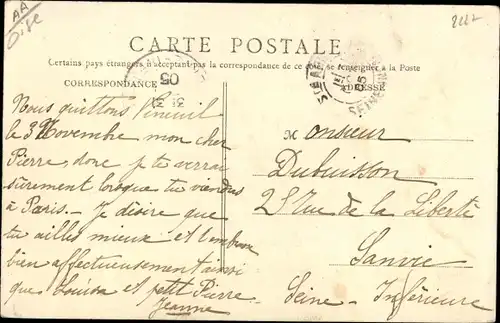 AA
Oise
2112
CARTE POSTALE
Certains pays étrangers n'acceptant pas la correspondance de ce côté, se renseigner à la Poste
CORRESPONDANCE
ADRESSE
05
05
SEINE
Nous quittons Vineuil
le 3 Novembre mon cher
Pierre, donc je te verrai
sûrement lorsque tu viendras
à Paris. Je désire que
tu ailles mieux et t'embrasse
bien affectueusement ainsi
que Louisa et petit Pierre.
Jeanne
Monsieur
Dubuisson
25 Rue de la Liberté
Sanvic
Seine-Inférieure